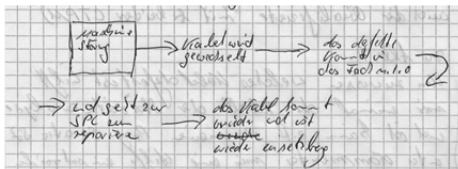 Maschine
störung
Kabel wird
gewechselt
das defekte
kommt in
das Fach n.i.O
und geht zur
SPC zum
reparieren
das Kabel kommt
wieder und ist
wieder einsetzbar